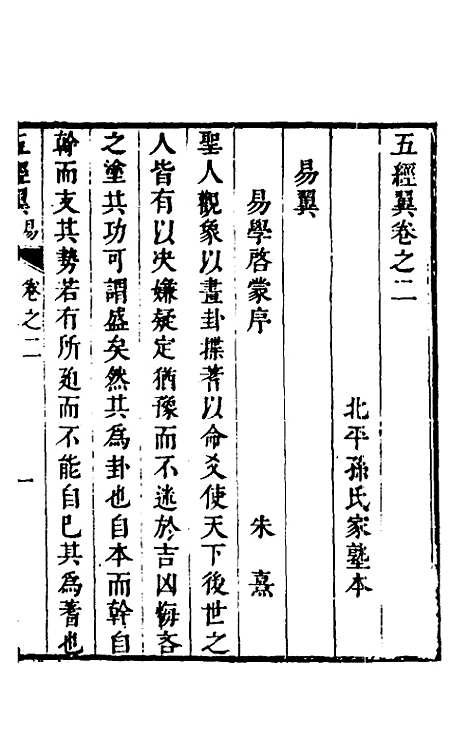 五經翼卷之二
北平孫氏家塾本
易翼
易學啓蒙序 朱熹
聖人觀象以畫卦揲蓍以命爻使天下後世之
人皆有以决嫌疑定猶豫而不迷於吉凶悔吝
之塗其功可謂盛矣然其爲卦也自本而幹自
幹而支其勢若有所廹而不能自已其爲蓍也
五經翼 易 卷之二 一